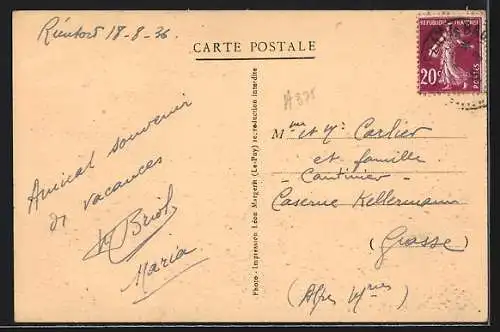 18-8-36
CARTE POSTALE
REPUBLIQUE FRANÇAISE
20c
POSTES
A375
Amical souvenir
de vacances
Maria
Photo-Impression Léon Margerit (Le-Puy) reproduction interdite
Mme et Mr Carlier
et famille
- Cantinier -
Caserne Kellermann
(Grasse)
(Alpes Mmes)